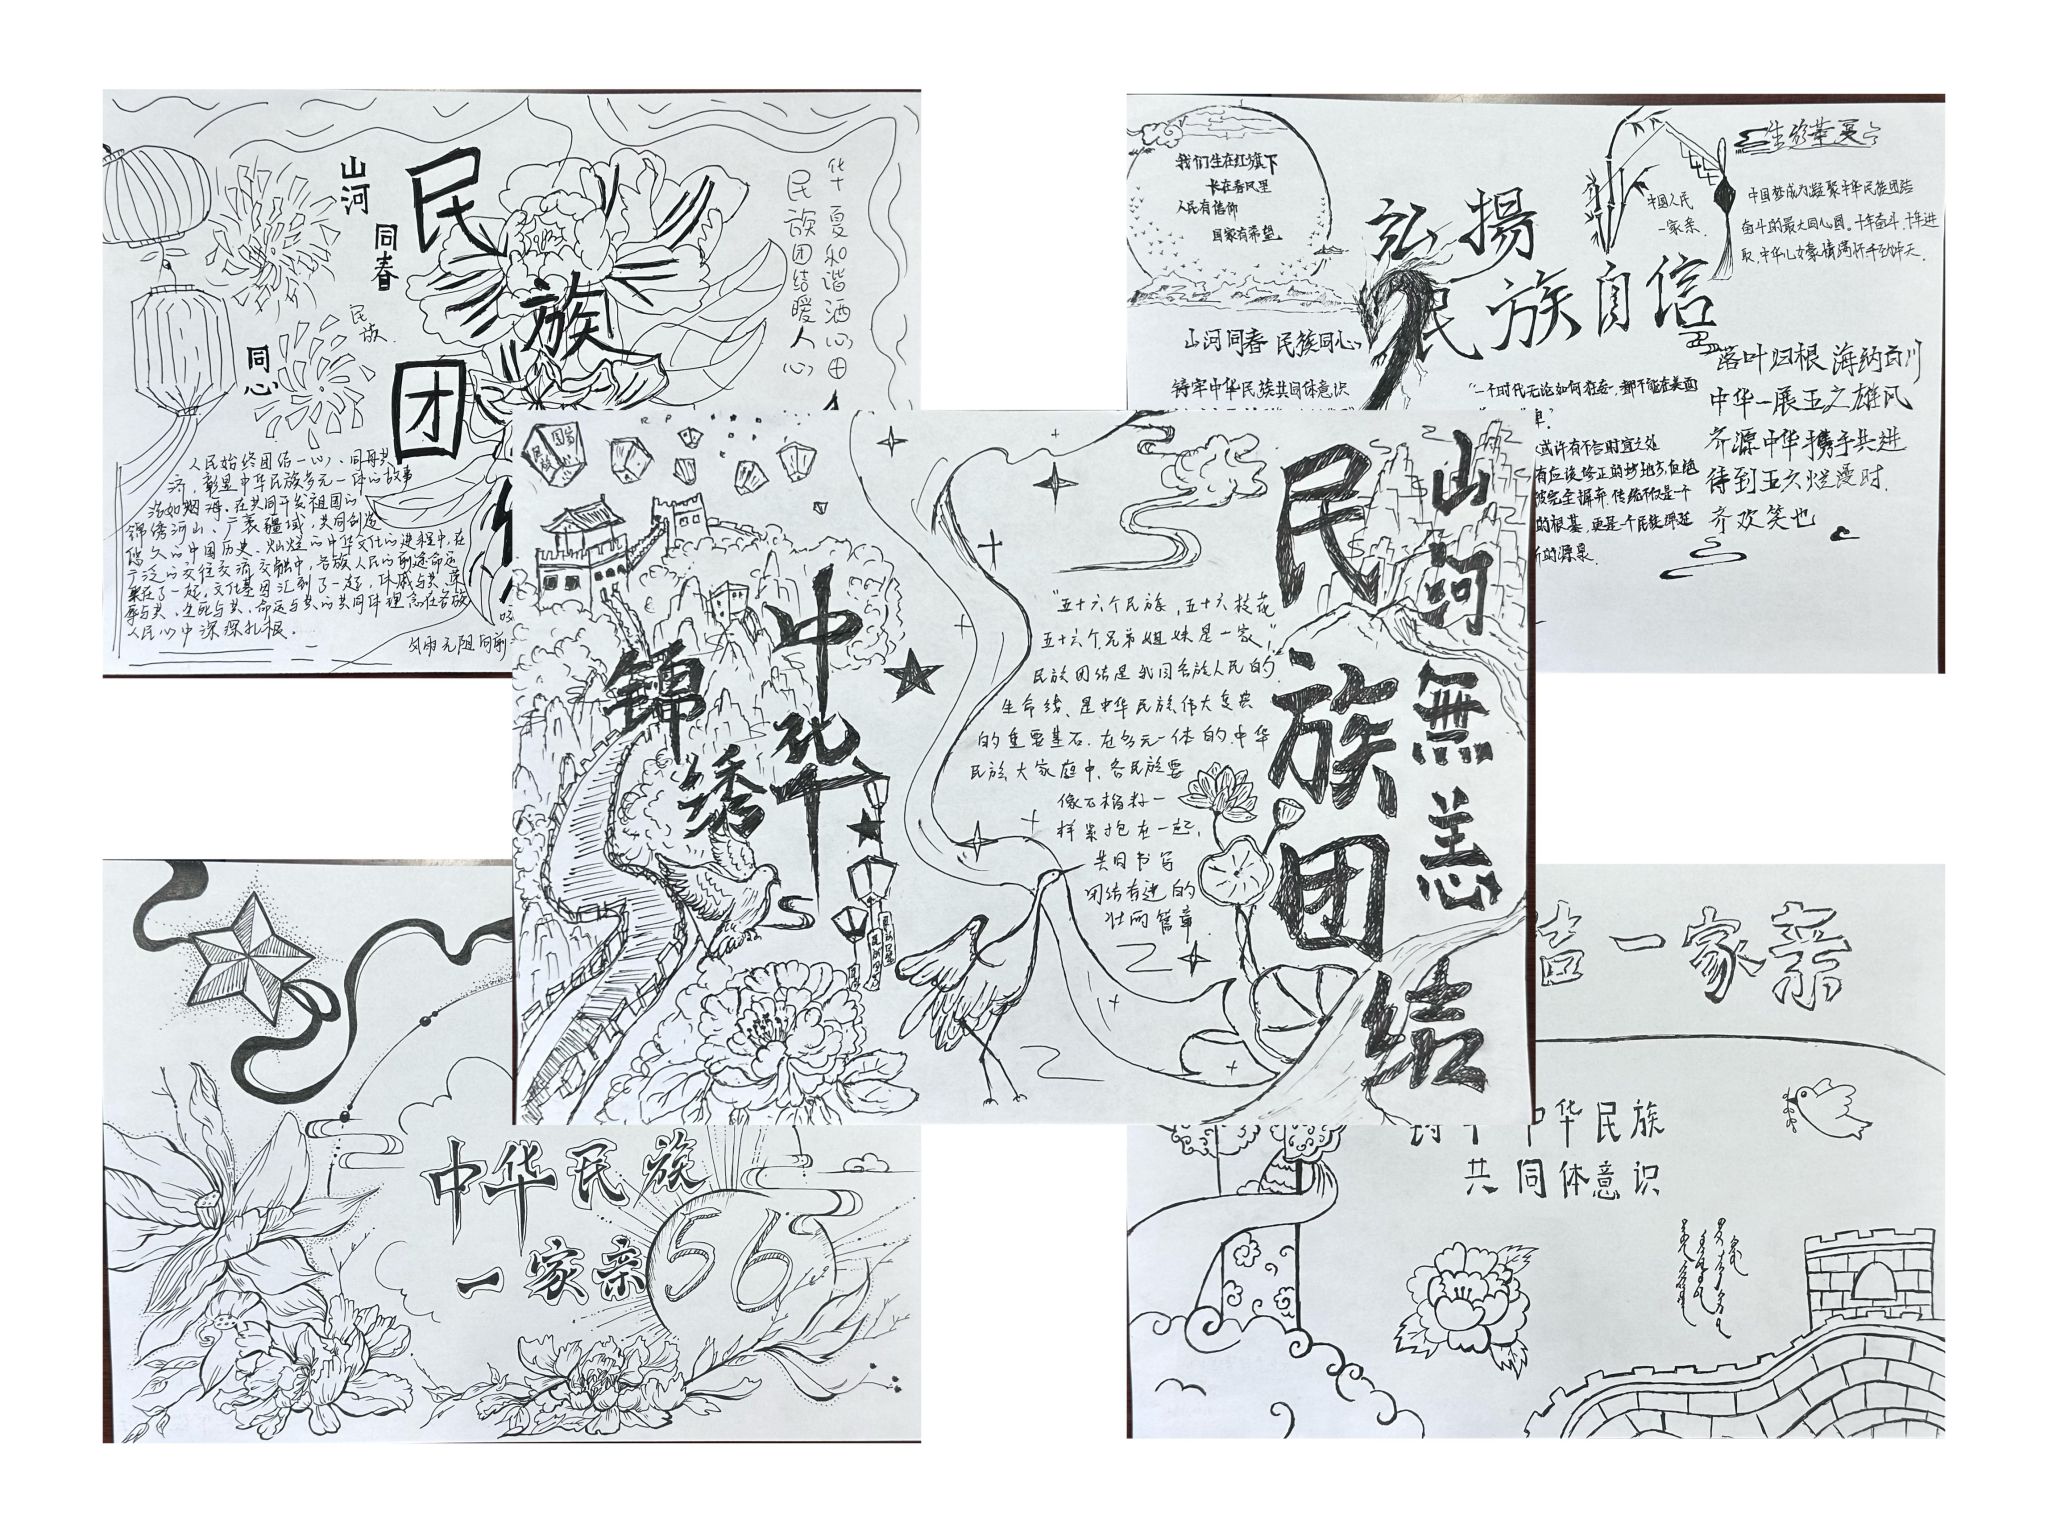 山河
同春
民族
同心
民
族
团
华夏和谐洒心田
民族团结暖人心
人民始终团结一心、同舟共
济,彰显中华民族多元一体的故事
浩如烟海,在共同开发祖国的
锦绣河山、广袤疆域,共同创造
悠久的中国历史、灿烂的中华文化的进程中,在
广泛的交往交流交融中,各族人民的前途命运
聚在了一起,文化基因汇到了一起,休戚与共、荣
辱与共、生死与共、命运与共的共同体理念在各族
人民心中深深扎根.
风雨无阻向前
我们生在红旗下
长在春风里
人民有信仰
国家有希望
弘揚
民族自信
中国人民
一家亲
生逢华夏
中国梦成为凝聚中华民族团结
奋斗的最大同心圆。十年奋斗,十年进
取,中华儿女豪情满怀
山河同春 民族同心
铸牢中华民族共同体意识
"一个时代无论如何
或许有不合时宜之处
有应该修正的
被完全摒弃,传统不仅是一个
的根基,更是一个民族
的源泉
落叶归根 海纳百川
中华一展五之雄风
齐源中华携手共进
待到五六烂漫时.
齐欢笑也
国家
民族
锦绣
中华
"五十六个民族,五十六枝花
五十六个兄弟姐妹是一家"
民族团结是我国各族人民的
生命线、是中华民族伟大复兴
的重要基石.在多元一体的中华
民族大家庭中,各民族要
像石榴籽一
样紧抱在一起,
共同书写
团结奋进的
壮丽篇章
民族团结
山河無恙
中华民族
一家亲
56
结一家亲
中华民族
共同体意识